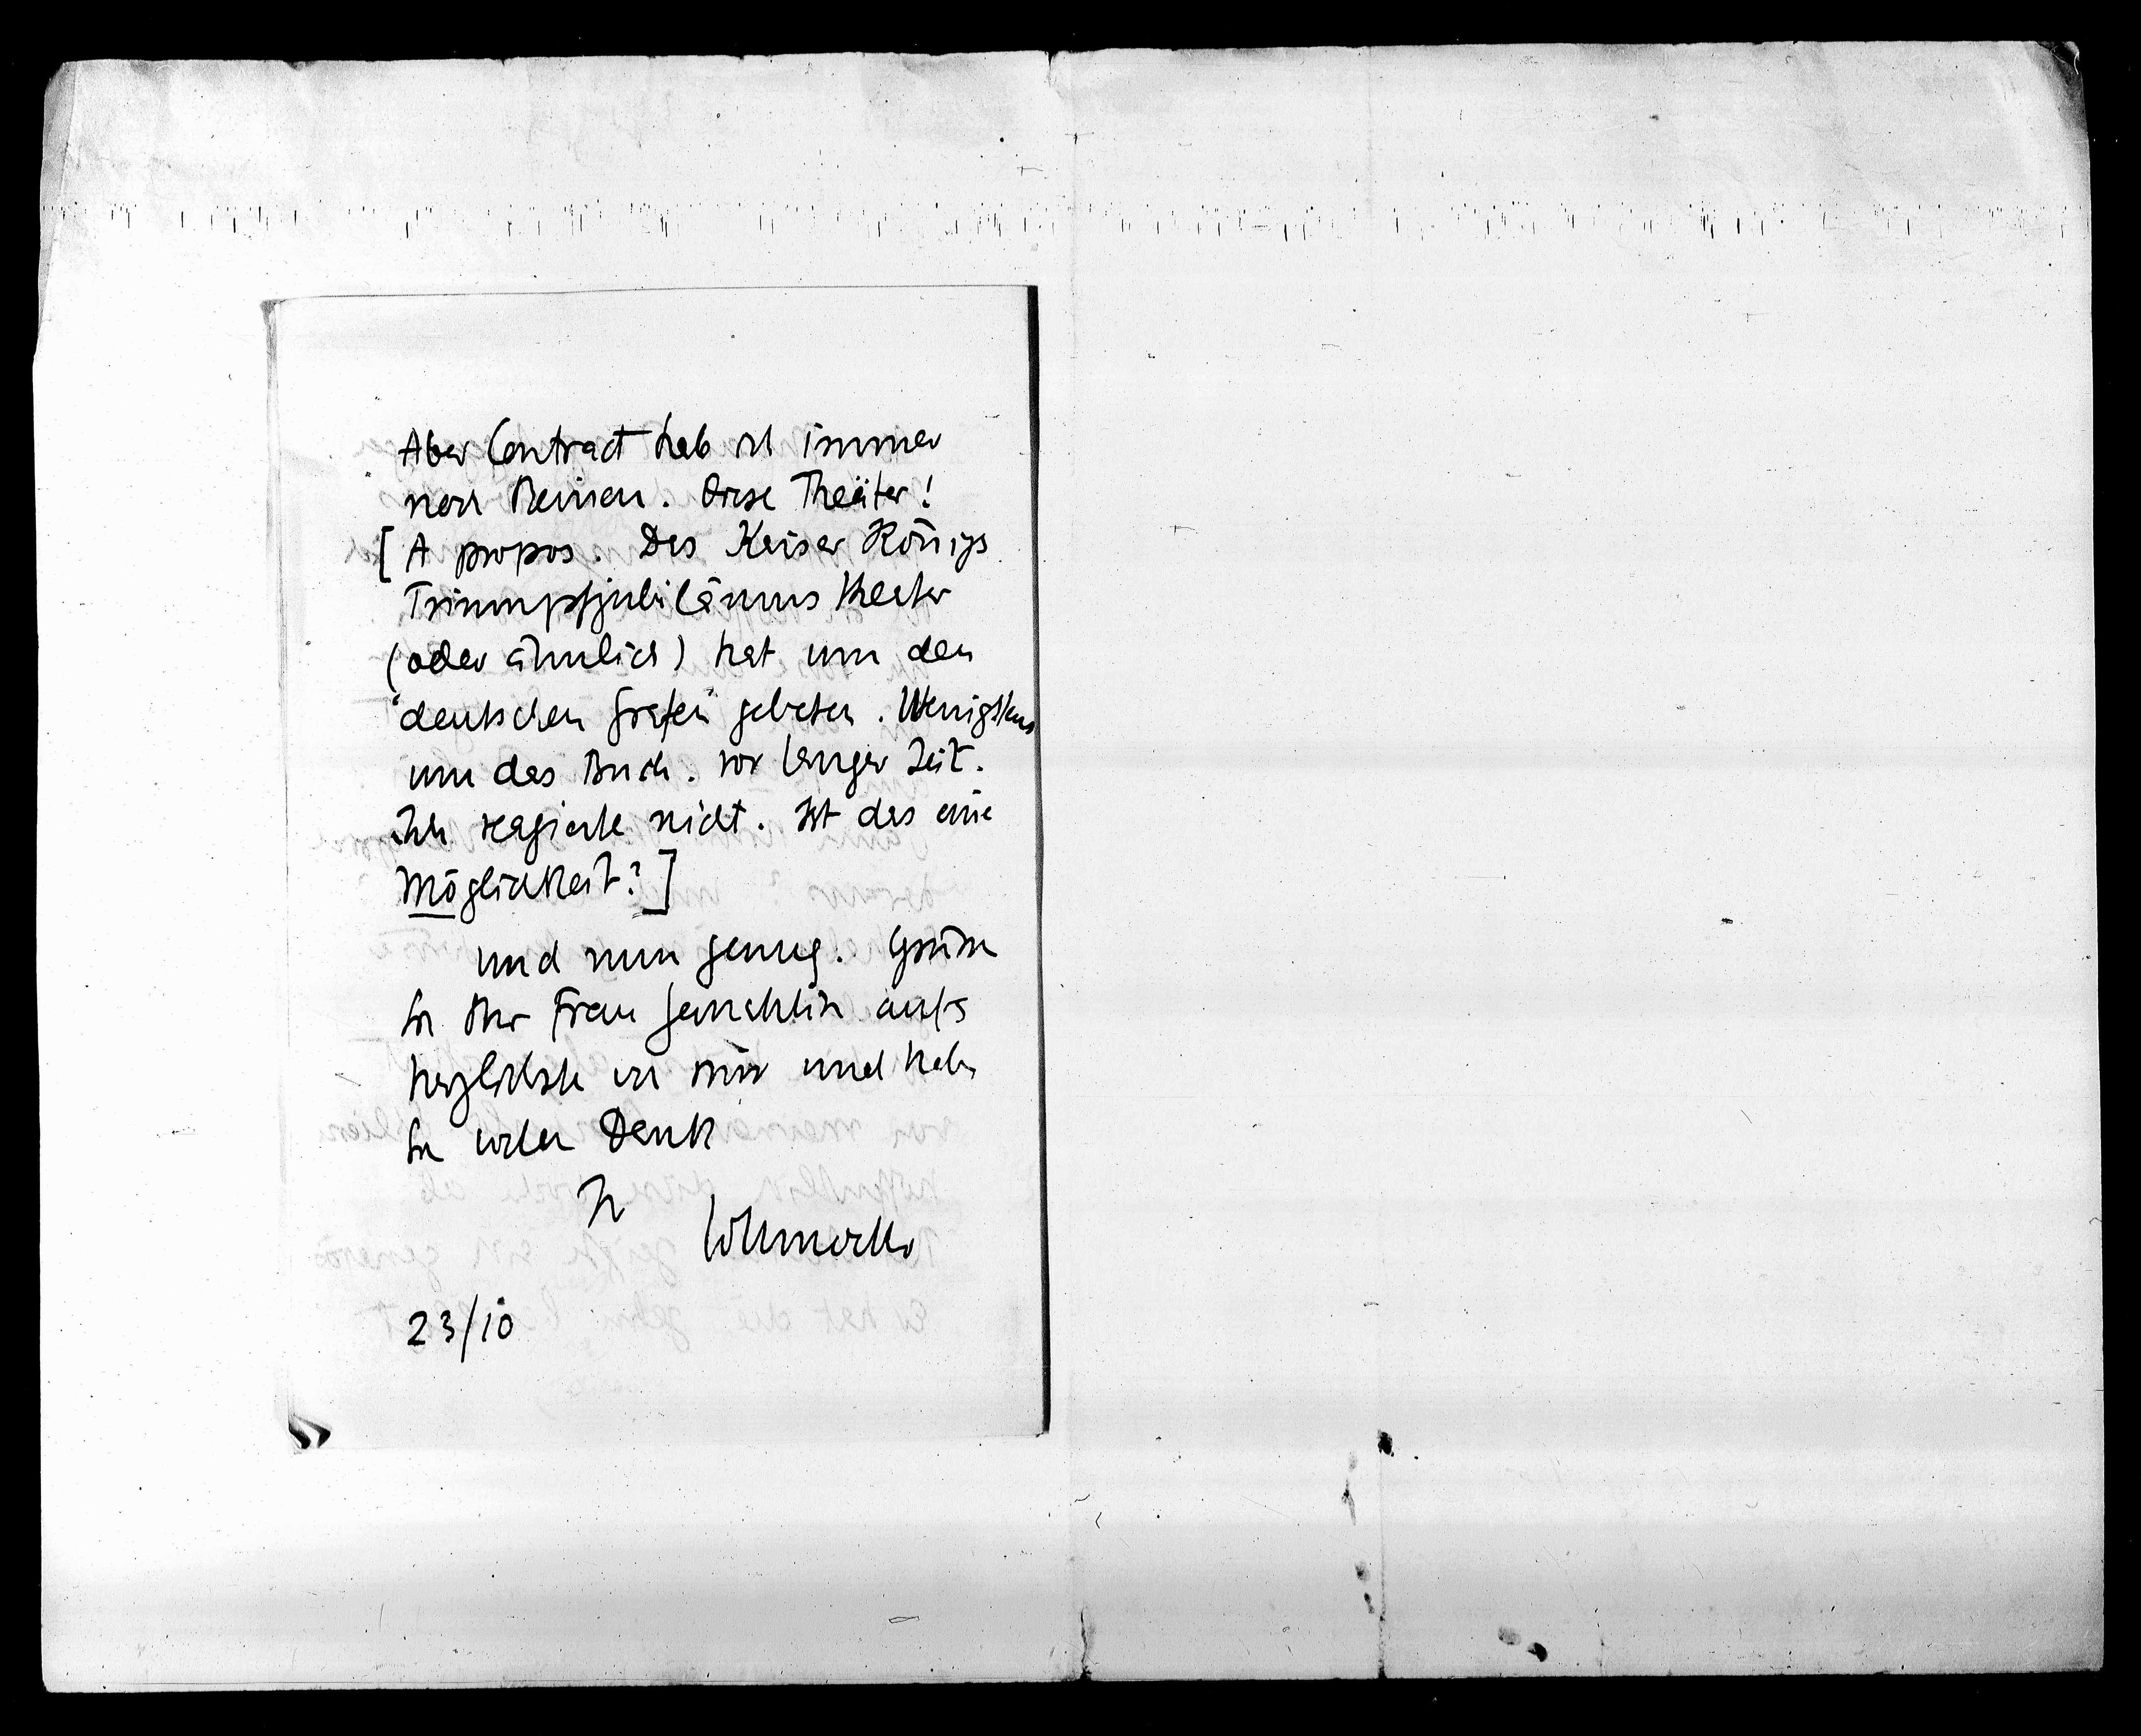 Aber Contract hab ich immer
noch keinen. Diese Theäter!
[A propos. Das Kaiser Königs
Triumpfjubiläums theater
(oder ähnlich) hat um den
"deutschen Grafen" gebeten. Wenigstens
um das Buch. vor langer Zeit.
Ich reagierte nicht. Ist das eine
Möglichkeit?]
und nun genug. Grüssen
Sie Ihre Frau Gemahlin aufs
herzlichste von mir und haben
Sie vielen Dank
Ihr
Vollmoeller
23/10